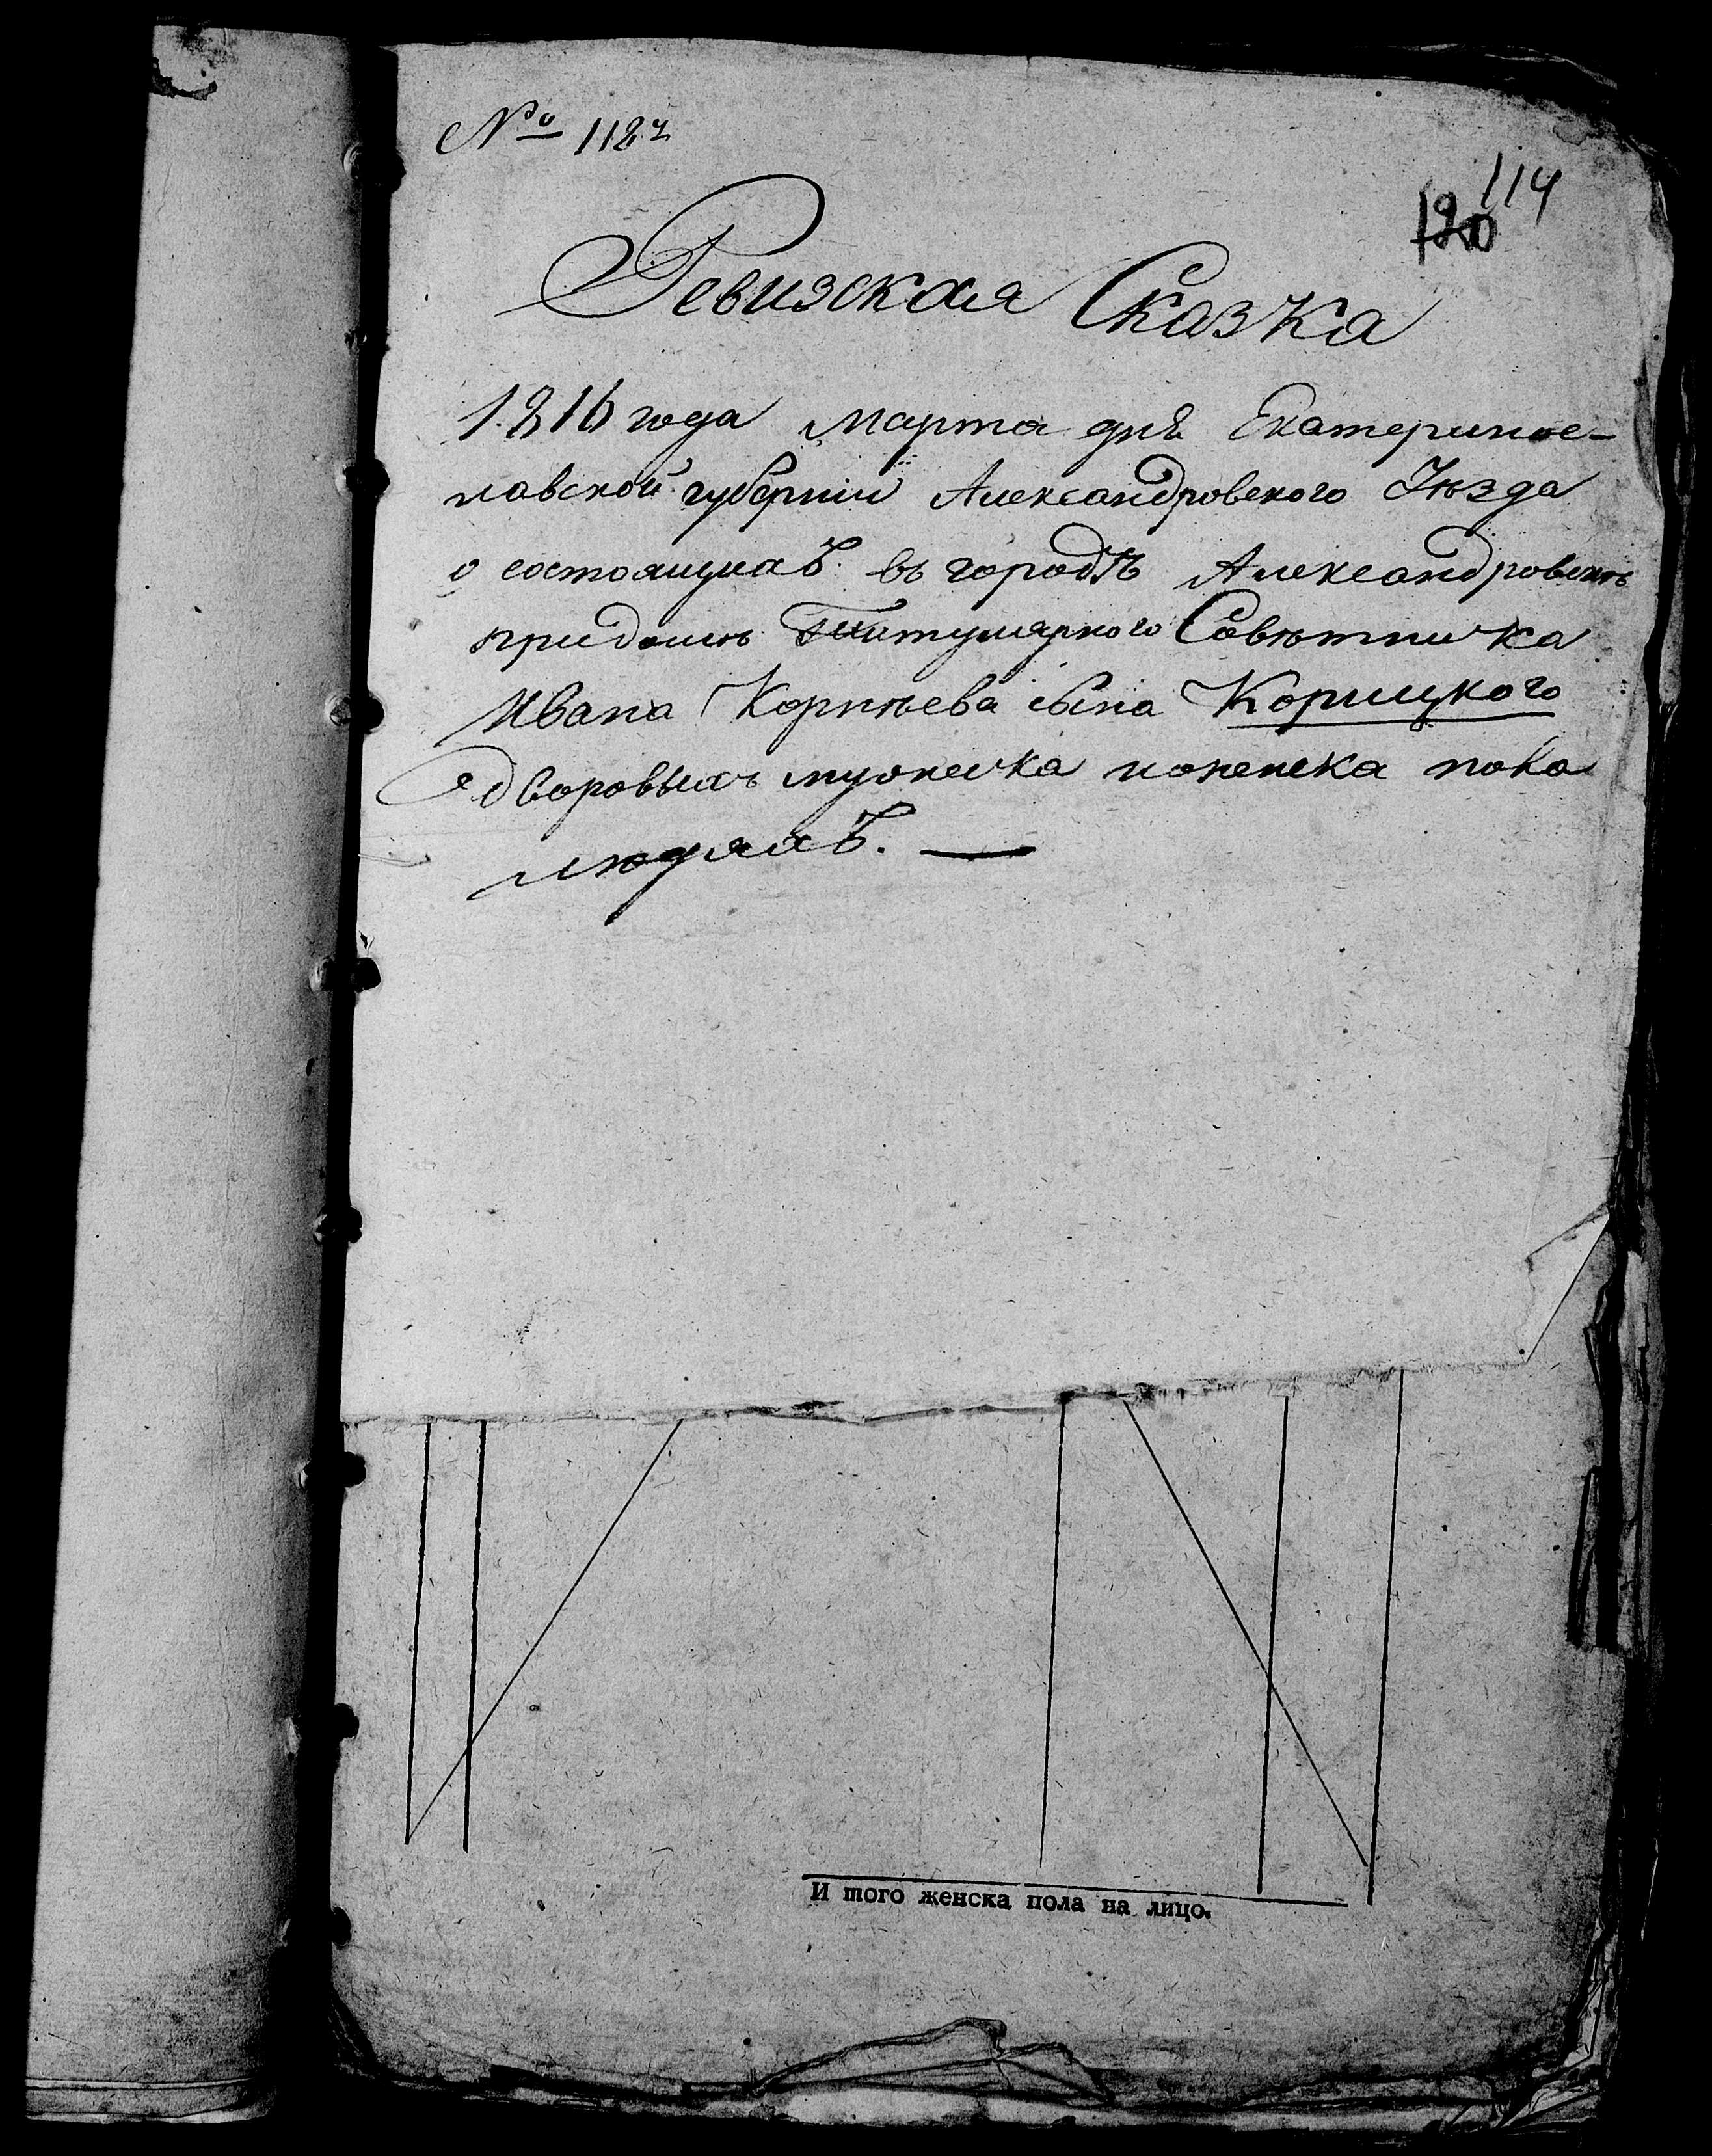 № 1187
114
120
Ревизская Сказка
1816 года Марта дня Екатеринос-
лавской губернии Александровского Уезда
о состоящихъ въ городѣ Александровскѣ
придомѣ Титулярного Совѣтника
Ивана Корнѣева сына Корицкого
дворовыхъ мужеска иженска пола
людяхъ. —
И того женска пола на лицо.